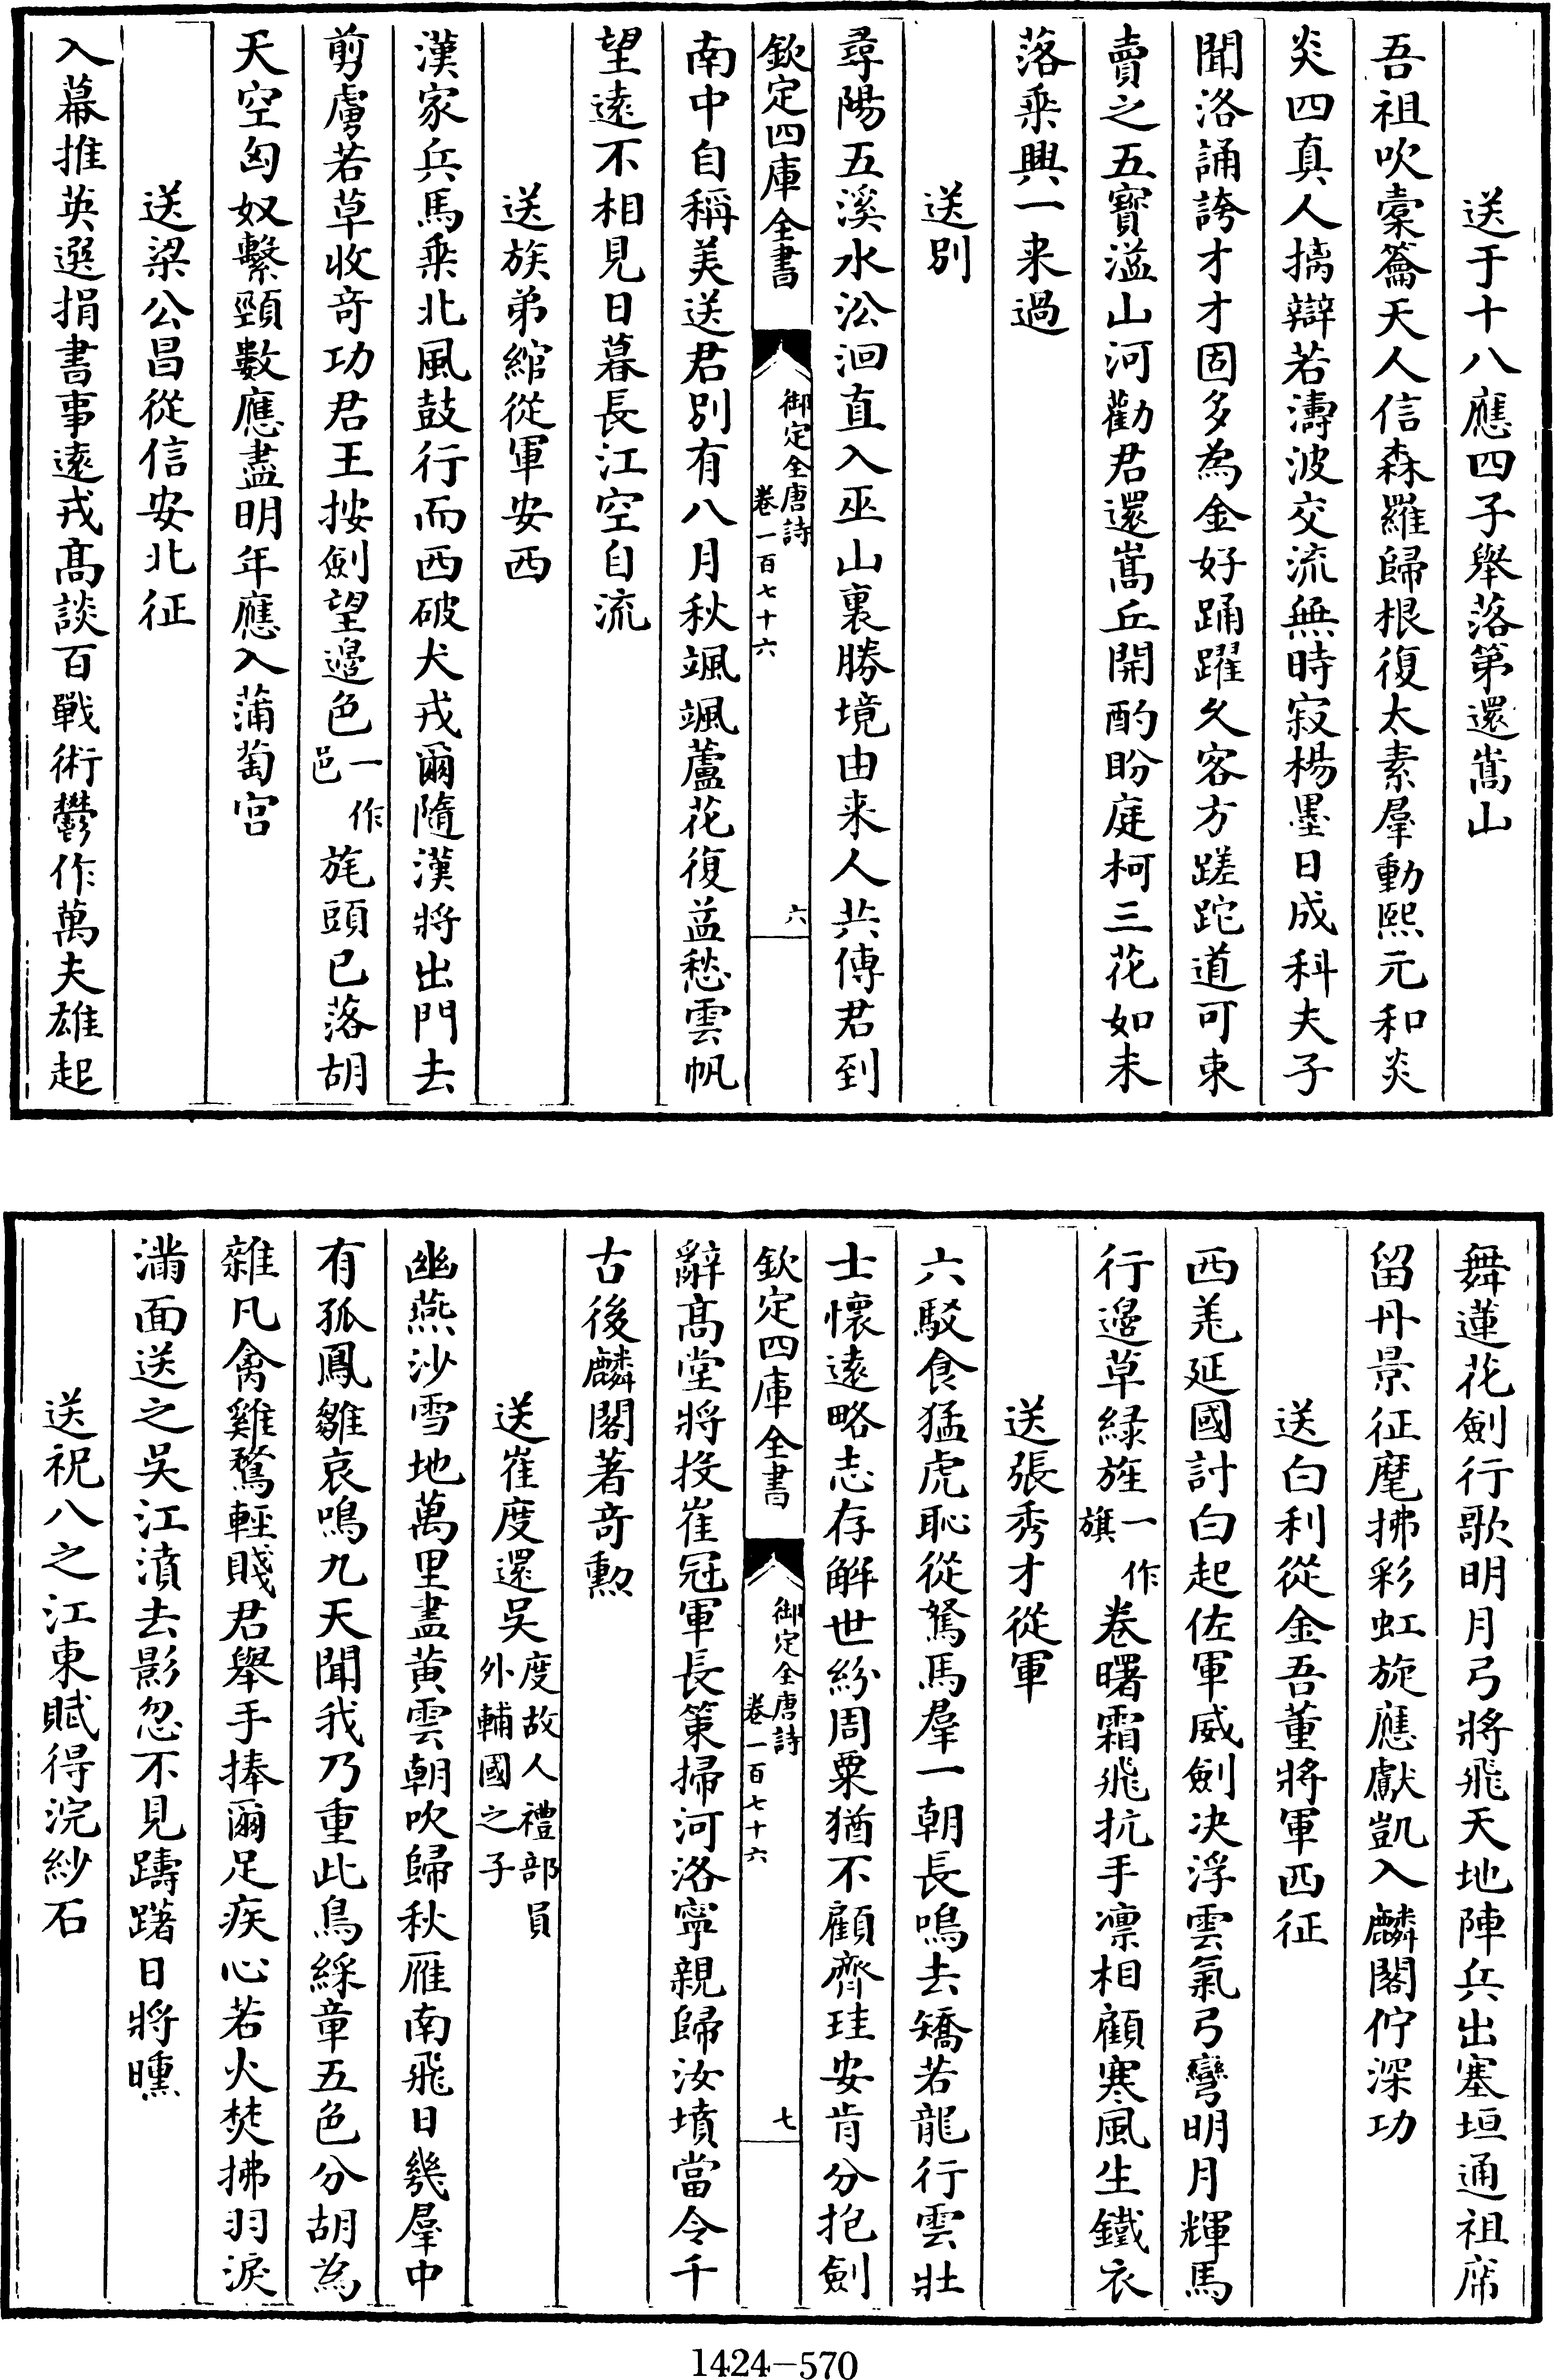 送于十八應四子舉落第還嵩山
吾祖吹橐籥天人信森羅歸根復太素羣動熙元和炎
炎四真人摛辯若濤波交流無時寂楊墨日成科夫子
聞洛誦誇才才固多為金好踊躍久客方蹉跎道可束
賣之五寳溢山河勸君還嵩丘開酌盼庭柯三花如未
落乗興一来過
送別
尋陽五溪水㳂洄直入巫山裏勝境由来人共傳君到
欽定四庫全書
御定全唐詩
卷一百七十六
六
南中自稱美送君別有八月秋颯颯蘆花復益愁雲帆
望逺不相見日暮長江空自流
送族弟綰從軍安西
漢家兵馬乗北風鼓行而西破犬戎爾隨漢將出門去
剪虜若草收奇功君王按劍望邉色一作邑旄頭已落胡
天空匈奴繫頸數應盡明年應入蒲萄宫
送梁公昌從信安北征
入幕推英選捐書事逺戎髙談百戰術鬱作萬夫雄起
舞蓮花劍行歌明月弓將飛天地陣兵出塞垣通祖席
留丹景征麾拂彩虹旋應獻凱入麟閣佇深功
送白利從金吾董將軍西征
西羌延國討白起佐軍威劍决浮雲氣弓彎明月輝馬
行邉草緑旌一作旗卷曙霜飛抗手凛相顧寒風生鐵衣
送張秀才從軍
六駁食猛虎恥從駑馬羣一朝長鳴去矯若龍行雲壯
士懷逺略志存解世紛周粟猶不顧齊珪安肯分抱劍
欽定四庫全書
御定全唐詩
卷一百七十六
七
辭髙堂將投崔冠軍長策掃河洛寧親歸汝墳當令千
古後麟閣著奇勲
送崔度還吳度故人禮部員外輔國之子
幽燕沙雪地萬里盡黄雲朝吹歸秋雁南飛日幾羣中
有孤鳳雛哀鳴九天聞我乃重此鳥綵章五色分胡為
雜凡禽雞鶩輕賤君舉手捧爾足疾心若火焚拂羽淚
滿面送之吳江濆去影忽不見躊躇日將曛
送祝八之江東賦得浣紗石
1424—570